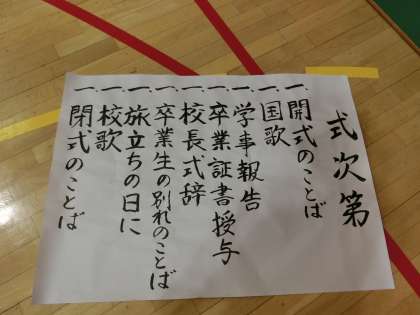 式次第
一、開式のことば
一、国歌
一、学事報告
一、卒業証書授与
一、校長式辞
一、卒業生の別れのことば
一、旅立ちの日に
一、校歌
一、閉式のことば